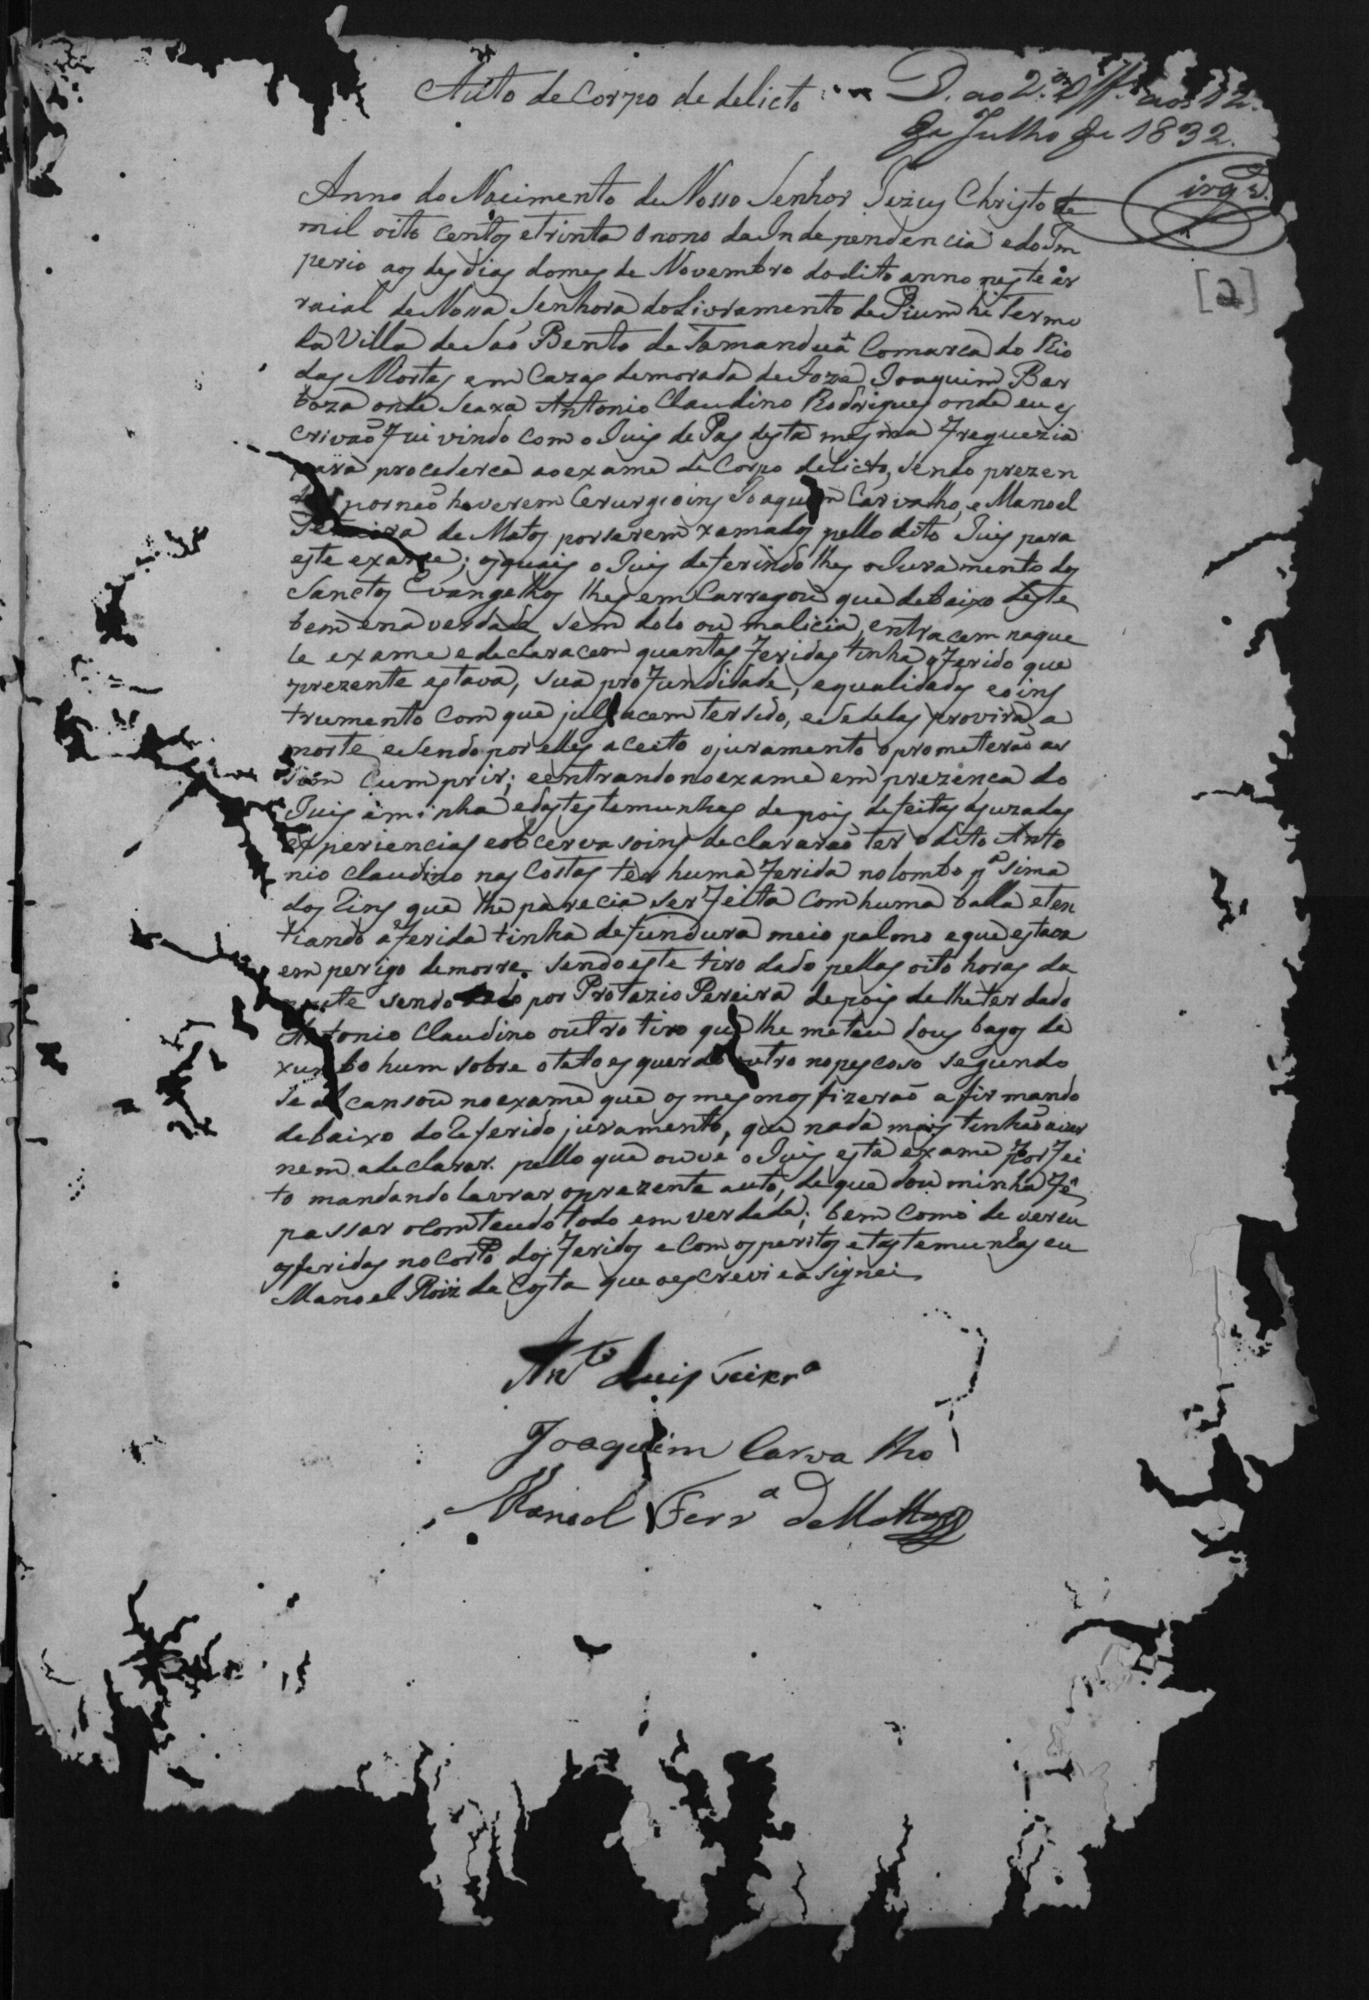 Auto de Corpo de delicto
D. ao 2.º Off.º aos 12
de Julho de 1832.
[2]
Anno do Nacimento de Nosso Senhor Jezus Christo de
mil oito centos e trinta o nono da Independencia e do Im
perio aos des dias do mes de Novembro do dito anno neste ar
raial de Nossa Senhora do Livramento de Piumhi Termo
da Villa de São Bento de Tamanduá Comarca do Rio
das Mortes em Cazas de morada de Joze Joaquim Bar
boza onde se axa Antonio Claudino Rodrigues onde eu es
crivão fui vindo com o Juis de Pas desta mesma Freguezia
para procederce ao exame de Corpo delicto, sendo prezen
por não haverem Cerurgioins Joaquim Carvalho, e Manoel
de Matos por serem xamados pello dito Juis para
este exame; os quais o Juis deferindo lhes o Juramento dos
Sanctos Evangelhos lhes em Carregou que debaixo deste
bem e na verdade sem dolo ou malicia, entracem naque
le exame e declaracem quantas feridas tinha o ferido que
prezente estava, sua profundidade, e qualidades e o ins
trumento com que julgacem ter sido, e se delas provirá a
morte e sendo por elles aceito o juramento o prometerão as
sim cumprir; e entrando no exame em prezença do
Juis a minha e das testemunhas depois de feitas as uzadas
experiencias e obcervasoins declararão ter o dito Anto
nio Claudino nas Costas ter huma ferida no lombo pª sima
dos Rins que lhe parecia ser feita com huma balla e ten
tiando a ferida tinha de fundura meio palmo e que estava
em perigo de morre sendo este tiro dado pellas oito horas da
noute sendo dado por Protazio Pereira depois de lhe ter dado
Antonio Claudino outro tiro que lhe meteu dous bagos de
xumbo hum sobre o teto esquerdo outro no pescoso segundo
se alcansou no exame que os mesmos fizerão afirmando
debaixo do Referido juramento, que nada mais tinhão a ver
nem a declarar. pello que ouve o Juis este exame por fei
to mandando lavrar o prezente auto, de que dou minha fé
passar o comteudo todo em verdade; bem como de ver eu
as feridas no corpo dos feridos e com os peritos e testemunhas eu
Manoel Roiz da Costa que o escrevi e asignei
Antº Luis
Joaquim Carvalho
Manoel Ferrª de Mattos